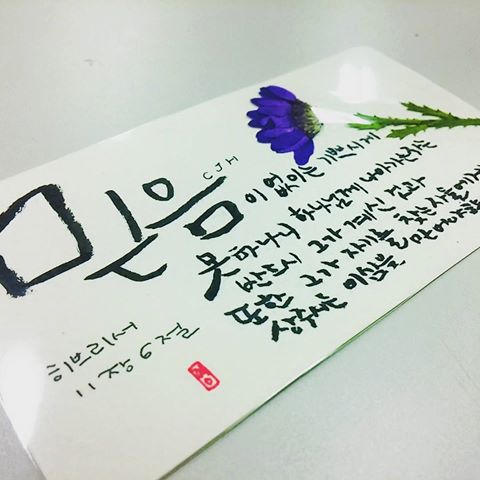 믿음이 없이는 기쁘시게
CJH
못하나니 하나님께 나아가는자는
반드시 그가 계신 것과
또한 그가 자기를 찾는자들에게
상주시는 이심을 믿어야할
히브리서
11장 6절